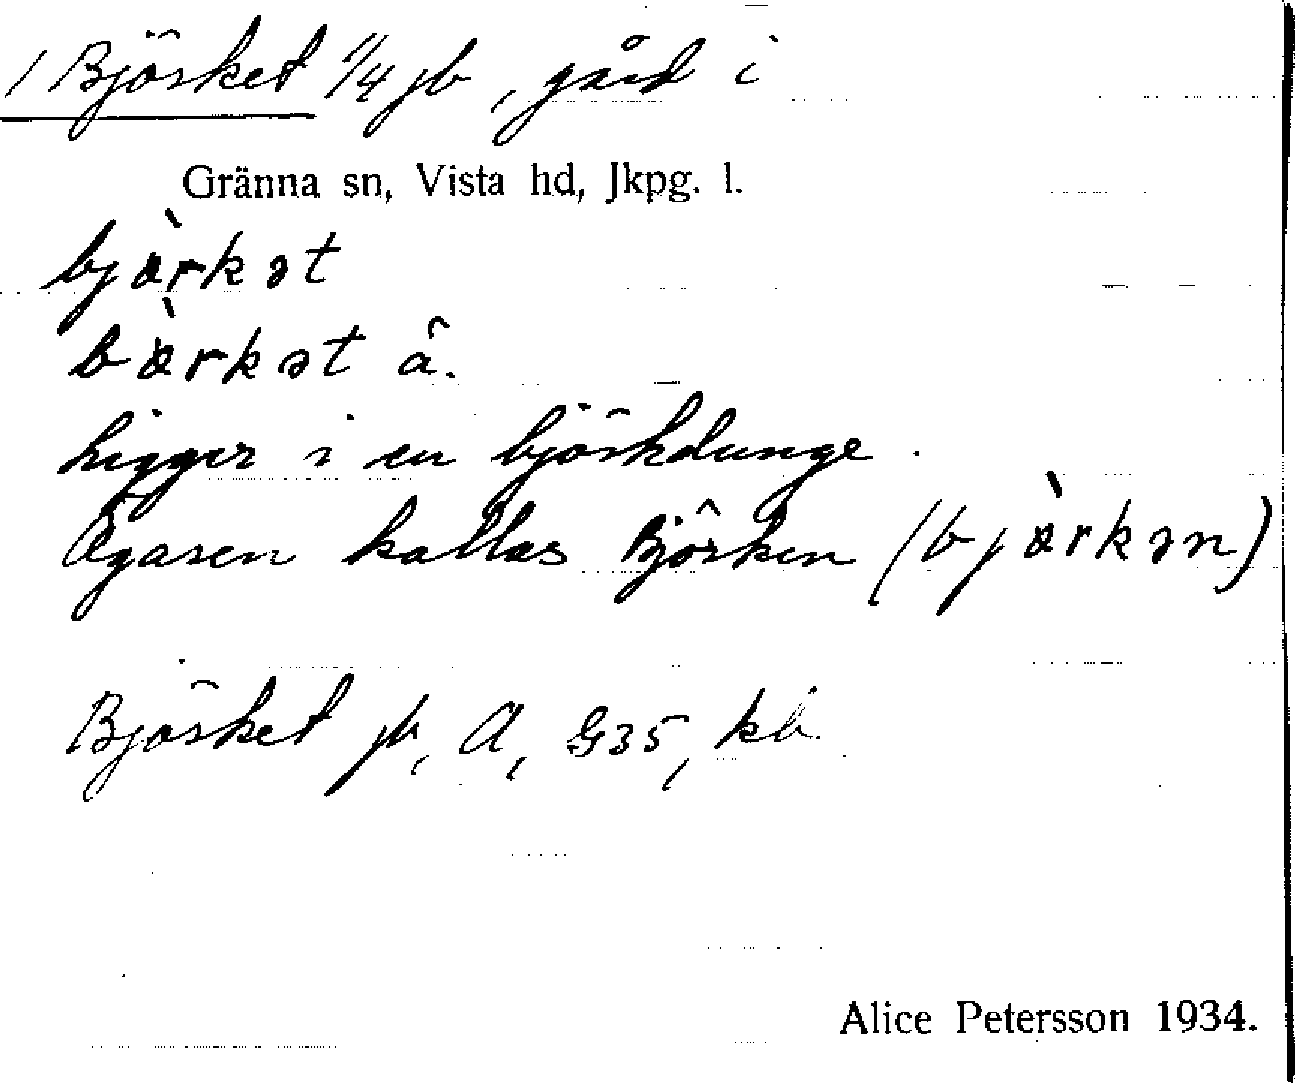 1 Björket 1/4 jb, gård i
Gränna sn, Vista hd, Jkpg. l.
bjæ̀rkət
bæ̀rkət â.
Ligger i en björkdunge.
Ägaren kallas Björken (bjæ̀rkən)
Björket jb, A, G35, kb
Alice Petersson 1934.